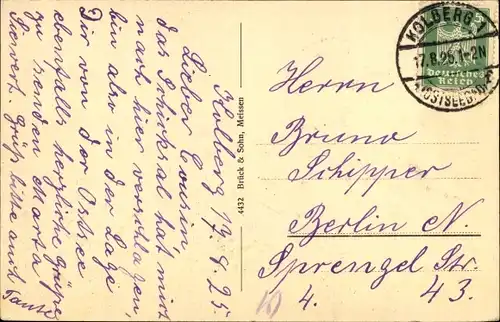 Kolberg 17.8.25.
Lieber Cousin!
das Schicksal hat mich
nach hier verschlagen,
bin also in der Lage
Dir von der Ostsee
ebenfalls herzliche Grüße
zu senden Marta
Sievert. Grüße bitte auch
Tante
4432 Brück & Sohn, Meissen
KOLBERG 1
17.8.25.1-2N
(OSTSEEBAD)
Deutsches
Reich
5
Herrn
Bruno
Schipper
Berlin N.
Sprengel Str.
4. 43.